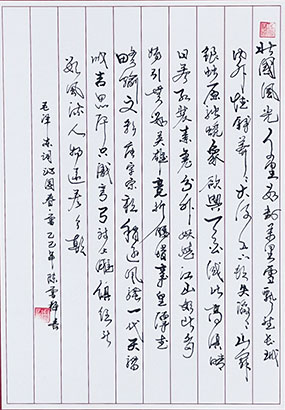 北國風光千里冰封萬里雪飄望長城
內外惟餘莽莽大河上下頓失滔滔山舞
銀蛇原馳蠟象欲與天公試比高須晴
日看紅裝素裹分外妖嬈江山如此多
嬌引無數英雄競折腰惜秦皇漢武
略輸文采唐宗宋祖稍遜風騷一代天驕
成吉思汗只識彎弓射大雕俱往矣
數風流人物還看今朝
毛澤東詞沁園春雪乙巳年